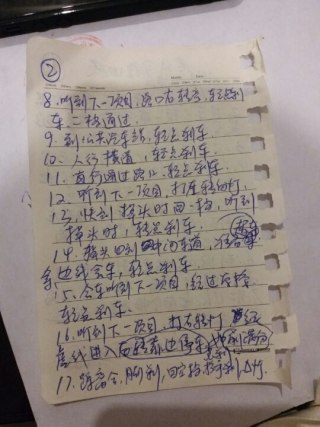 ②
8.听到下一项目,路口右转弯,轻踩刹
车,二档通过.
9.到公共汽车站,轻点刹车.
10.人行横道,轻点刹车.
11.直行通过路口,轻点刹车.
12.听到下一项目 打左转向灯,
13.快到掉头时间一档,听到
掉头时,轻点刹车.
14.掉头回到
会车,轻点刹车.
15.会车听到下一项目,经过反
轻点刹车.
16.听到下一项目,打右转灯
虚线进入 靠边停车
17.踩离合,刹,回空档,拉手刹,灯.